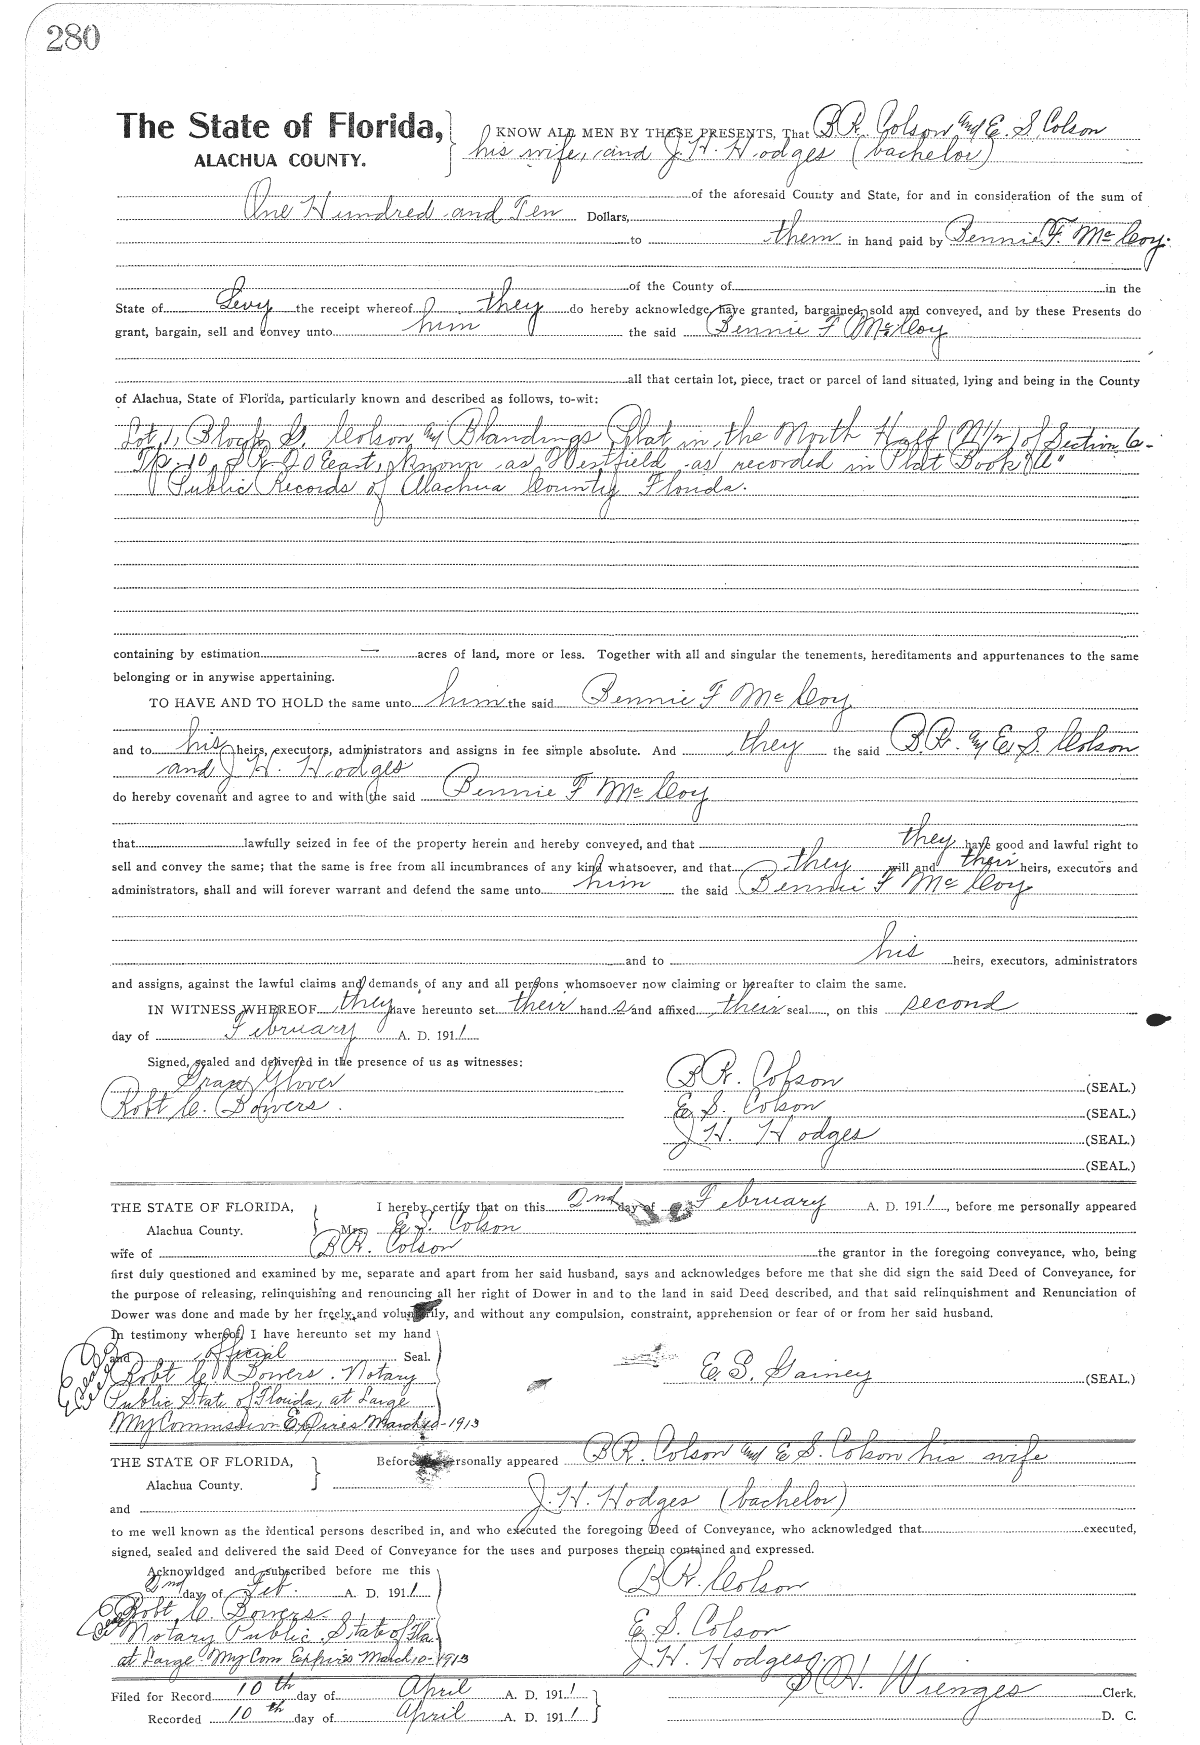 280
The State of Florida, KNOW ALL MEN BY THESE PRESENTS, That B.R. Colson and E. S. Colson
ALACHUA COUNTY. his wife, and J. H. Hodges (bachelor)
of the aforesaid County and State, for and in consideration of the sum of
One Hundred and Ten Dollars,
to them in hand paid by Bennie F. McCoy.
of the County of in the
State of Levy the receipt whereof they do hereby acknowledge, have granted, bargained, sold and conveyed, and by these Presents do
grant, bargain, sell and convey unto him the said Bennie F McCoy
all that certain lot, piece, tract or parcel of land situated, lying and being in the County
of Alachua, State of Florida, particularly known and described as follows, to-wit:
Lot 1, Block Colson and Blandings Plat in the North Half (N1/2) of Section 6-
Tp. 10, S R 20 East, known as Westfield as recorded in Plat Book "A"
Public Records of Alachua County Florida.
containing by estimation — acres of land, more or less. Together with all and singular the tenements, hereditaments and appurtenances to the same
belonging or in anywise appertaining.
TO HAVE AND TO HOLD the same unto him the said Bennie F McCoy
and to his heirs, executors, administrators and assigns in fee simple absolute. And they the said B.R. and E. S. Colson
and J. H. Hodges
do hereby covenant and agree to and with the said Bennie F McCoy
that lawfully seized in fee of the property herein and hereby conveyed, and that they have good and lawful right to
sell and convey the same; that the same is free from all incumbrances of any kind whatsoever, and that they will and their heirs, executors and
administrators, shall and will forever warrant and defend the same unto him the said Bennie F McCoy
and to his heirs, executors, administrators
and assigns, against the lawful claims and demands of any and all persons whomsoever now claiming or hereafter to claim the same.
IN WITNESS WHEREOF they have hereunto set their hand s and affixed their seal , on this second
day of February A. D. 1911
Signed, sealed and delivered in the presence of us as witnesses:
Glover B R. Colson (SEAL.)
Robt C. Bowers. E S. Colson (SEAL.)
J H. Hodges (SEAL.)
(SEAL.)
THE STATE OF FLORIDA, I hereby certify that on this 2nd day of February A. D. 1911, before me personally appeared
Alachua County. Mrs. E. S. Colson
wife of B R. Colson the grantor in the foregoing conveyance, who, being
first duly questioned and examined by me, separate and apart from her said husband, says and acknowledges before me that she did sign the said Deed of Conveyance, for
the purpose of releasing, relinquishing and renouncing all her right of Dower in and to the land in said Deed described, and that said relinquishment and Renunciation of
Dower was done and made by her freely and voluntarily, and without any compulsion, constraint, apprehension or fear of or from her said husband.
In testimony whereof, I have hereunto set my hand
and official Seal.
Robt C Bowers. Notary E. S. Gainey (SEAL.)
Public State of Florida, at Large
My Commission Expires March 10-1913
THE STATE OF FLORIDA, Before me personally appeared B R. Colson and E S. Colson his wife
Alachua County.
and J. H. Hodges (bachelor)
to me well known as the identical persons described in, and who executed the foregoing Deed of Conveyance, who acknowledged that executed,
signed, sealed and delivered the said Deed of Conveyance for the uses and purposes therein contained and expressed.
Acknowldged and subscribed before me this
2nd day of Feb. A. D. 1911 B R. Colson
Robt C. Bowers
Notary Public State of Fla. E S. Colson
at Large My Com Expires March 10-1913 J. H. Hodges
Filed for Record 10th day of April A. D. 1911 S. H. Wienges Clerk.
Recorded 10th day of April A. D. 1911 D. C.